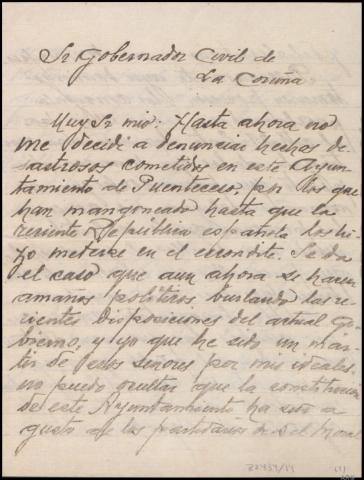 Sr Gobernador Civil de
La Coruña
Muy Sr mio: Hasta ahora no
me decidí a denunciar hechos de
sastrosos cometidos en este Ayun
tamiento de Puenteceso por los que
han mangoneado hasta que la
reciente Republica española los hi
zo meterse en el escondite. Se da
el caso que aun ahora se hacen
amaños politicos burlando las re
cientes disposiciones del actual Go
bierno, y yo que he sido un mar
tir de estos señores por mis ideales,
no puedo ocultar que la constitucion
de este Ayuntamiento ha sido a
gusto de los partidarios de
(1)